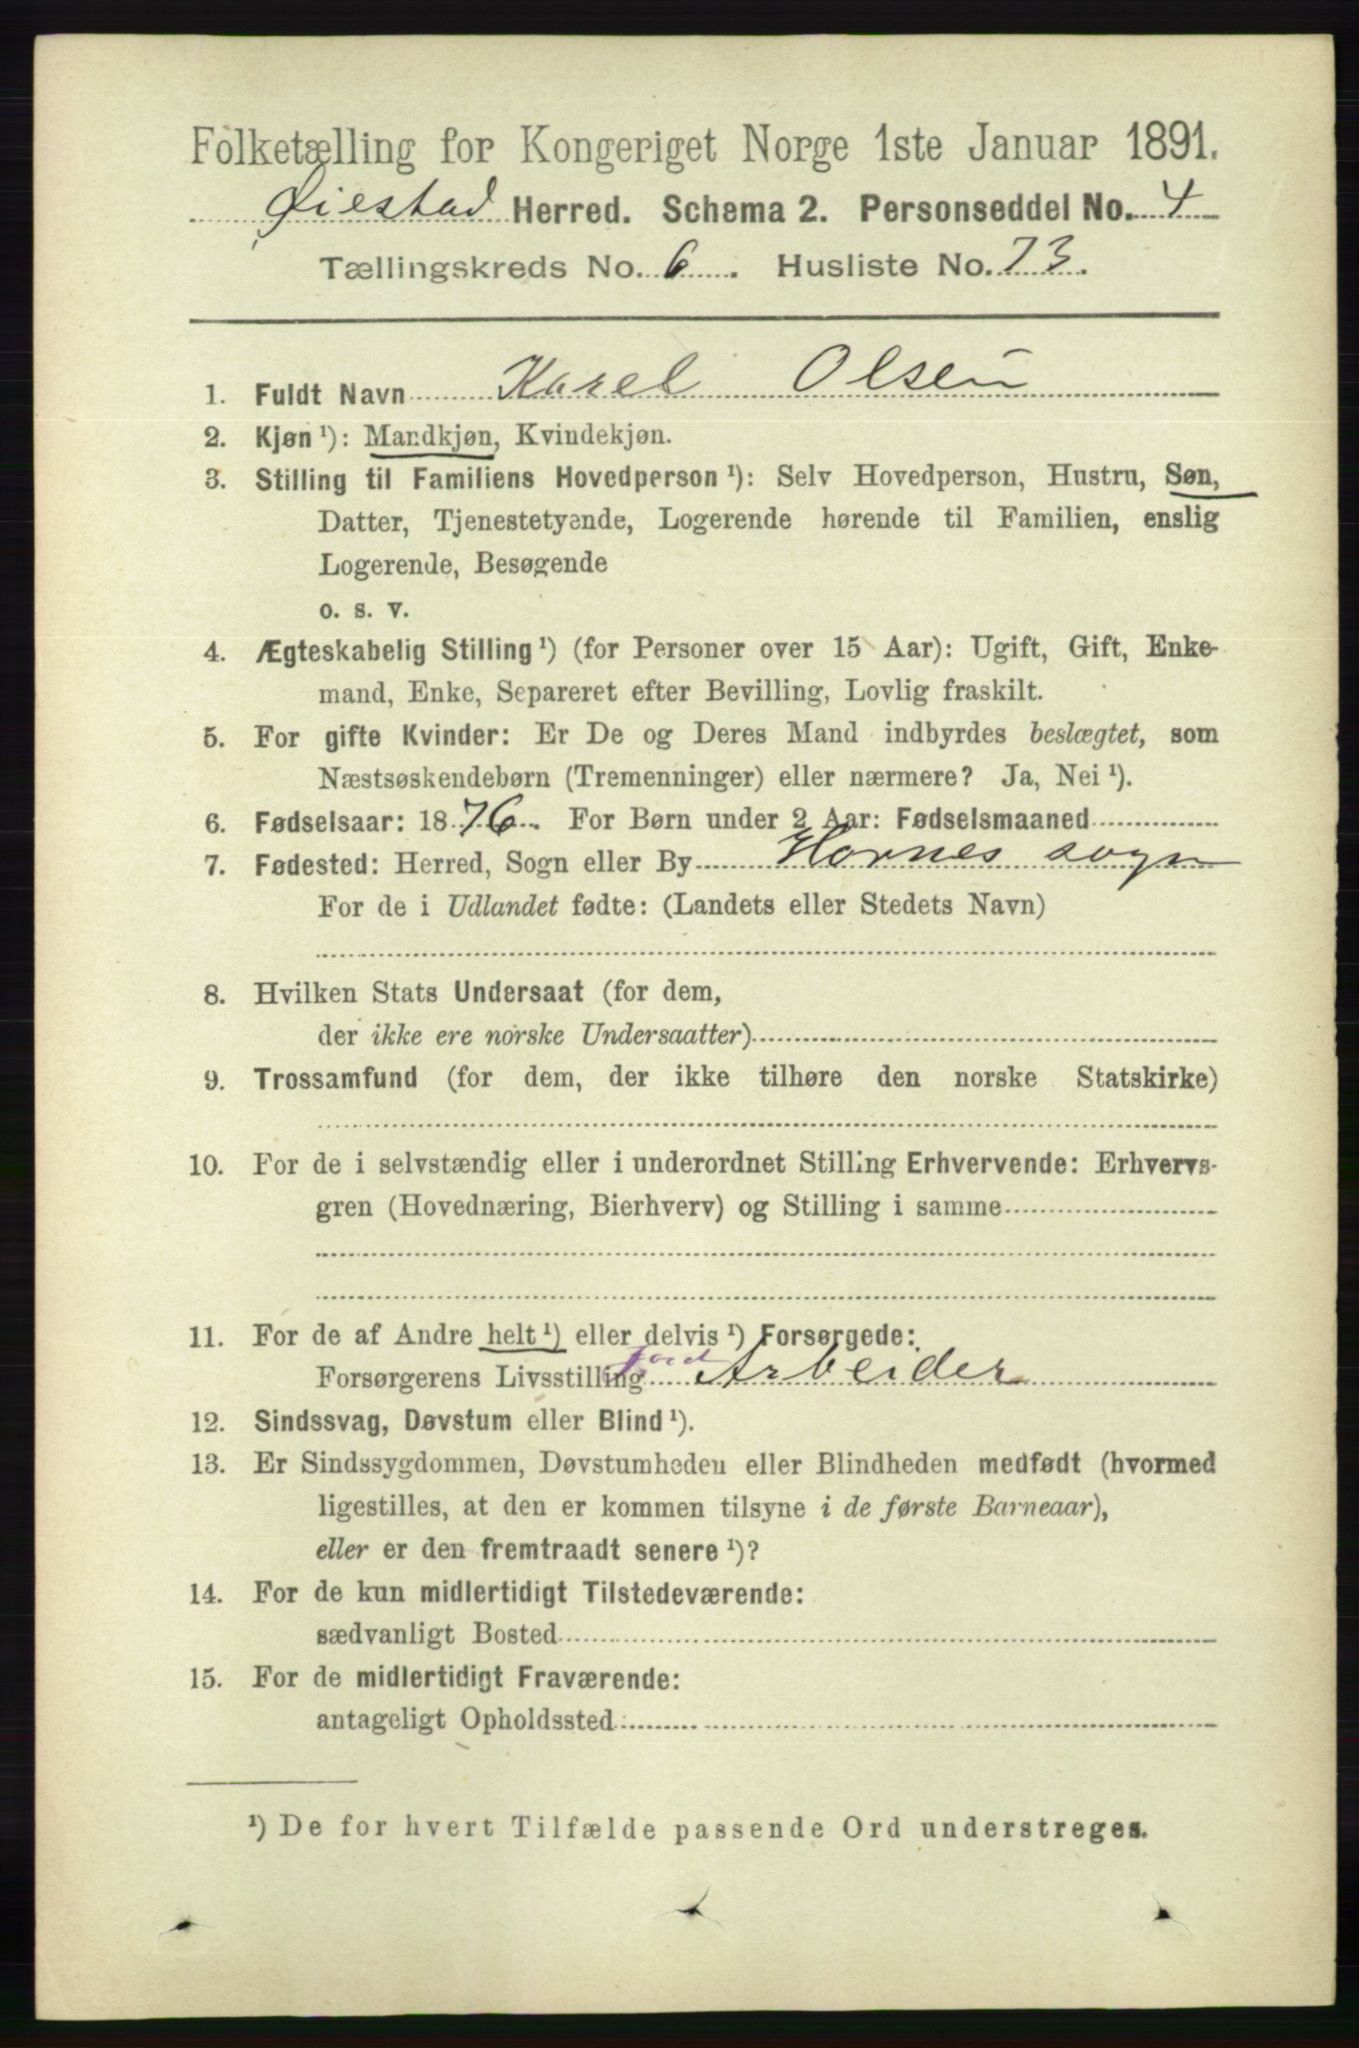 Folketælling for Kongeriget Norge 1ste Januar 1891.
Øiestad Herred. Schema 2. Personseddel No. 4
Tællingskreds No. 6. Husliste No. 73.
1. Fuldt Navn Karel Olsen
2. Kjøn ¹): Mandkjøn, Kvindekjøn.
3. Stilling til Familiens Hovedperson ¹): Selv Hovedperson, Hustru, Søn,
Datter, Tjenestetyende, Logerende hørende til Familien, enslig
Logerende, Besøgende
o. s. v.
4. Ægteskabelig Stilling ¹) (for Personer over 15 Aar): Ugift, Gift, Enke-
mand, Enke, Separeret efter Bevilling, Lovlig fraskilt.
5. For gifte Kvinder: Er De og Deres Mand indbyrdes beslægtet, som
Næstsøskendebørn (Tremenninger) eller nærmere? Ja, Nei ¹).
6. Fødselsaar: 1876. For Børn under 2 Aar: Fødselsmaaned
7. Fødested: Herred, Sogn eller By Hornes sogn
For de i Udlandet fødte: (Landets eller Stedets Navn)
8. Hvilken Stats Undersaat (for dem,
der ikke ere norske Undersaatter)
9. Trossamfund (for dem, der ikke tilhøre den norske Statskirke)
10. For de i selvstændig eller i underordnet Stilling Erhvervende: Erhvervs-
gren (Hovednæring, Bierhverv) og Stilling i samme
11. For de af Andre helt ¹) eller delvis ¹) Forsørgede:
Forsørgerens Livsstilling Jord Arbeider
12. Sindssvag, Døvstum eller Blind ¹).
13. Er Sindssygdommen, Døvstumheden eller Blindheden medfødt (hvormed
ligestilles, at den er kommen tilsyne i de første Barneaar),
eller er den fremtraadt senere ¹)?
14. For de kun midlertidigt Tilstedeværende:
sædvanligt Bosted
15. For de midlertidigt Fraværende:
antageligt Opholdssted
¹) De for hvert Tilfælde passende Ord understreges.